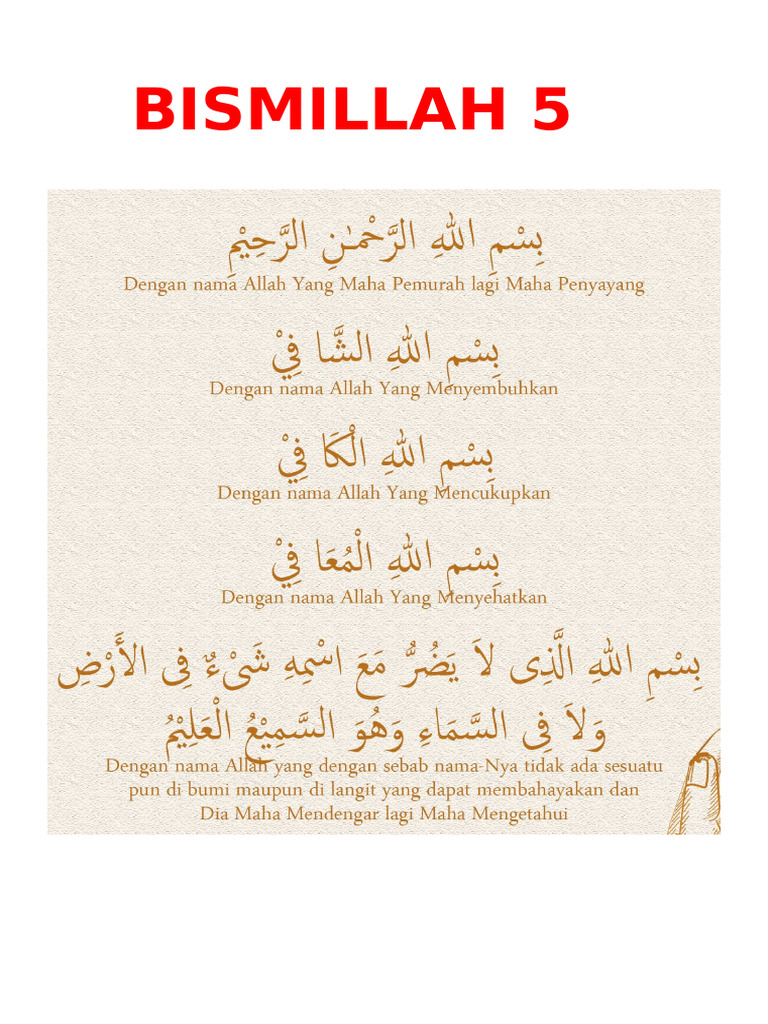 BISMILLAH 5
بِسْمِ اللهِ الرَّحْمٰنِ الرَّحِيْمِ
Dengan nama Allah Yang Maha Pemurah lagi Maha Penyayang
بِسْمِ اللهِ الشَّا فِيْ
Dengan nama Allah Yang Menyembuhkan
بِسْمِ اللهِ الْكَا فِيْ
Dengan nama Allah Yang Mencukupkan
بِسْمِ اللهِ الْمُعَا فِيْ
Dengan nama Allah Yang Menyehatkan
بِسْمِ اللهِ الَّذِى لاَ يَضُرُّ مَعَ اسْمِهِ شَىْءٌ فِى الأَرْضِ
وَلاَ فِى السَّمَاءِ وَهُوَ السَّمِيْعُ الْعَلِيْمُ
Dengan nama Allah yang dengan sebab nama-Nya tidak ada sesuatu
pun di bumi maupun di langit yang dapat membahayakan dan
Dia Maha Mendengar lagi Maha Mengetahui